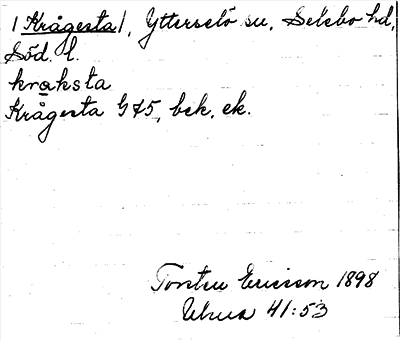 /Krågesta/, Ytterselö sn, Selebo hd,
Söd. l.
kraksta
Krågesta G45, bek, ek.
Torsten Ericsson 1898
41:53